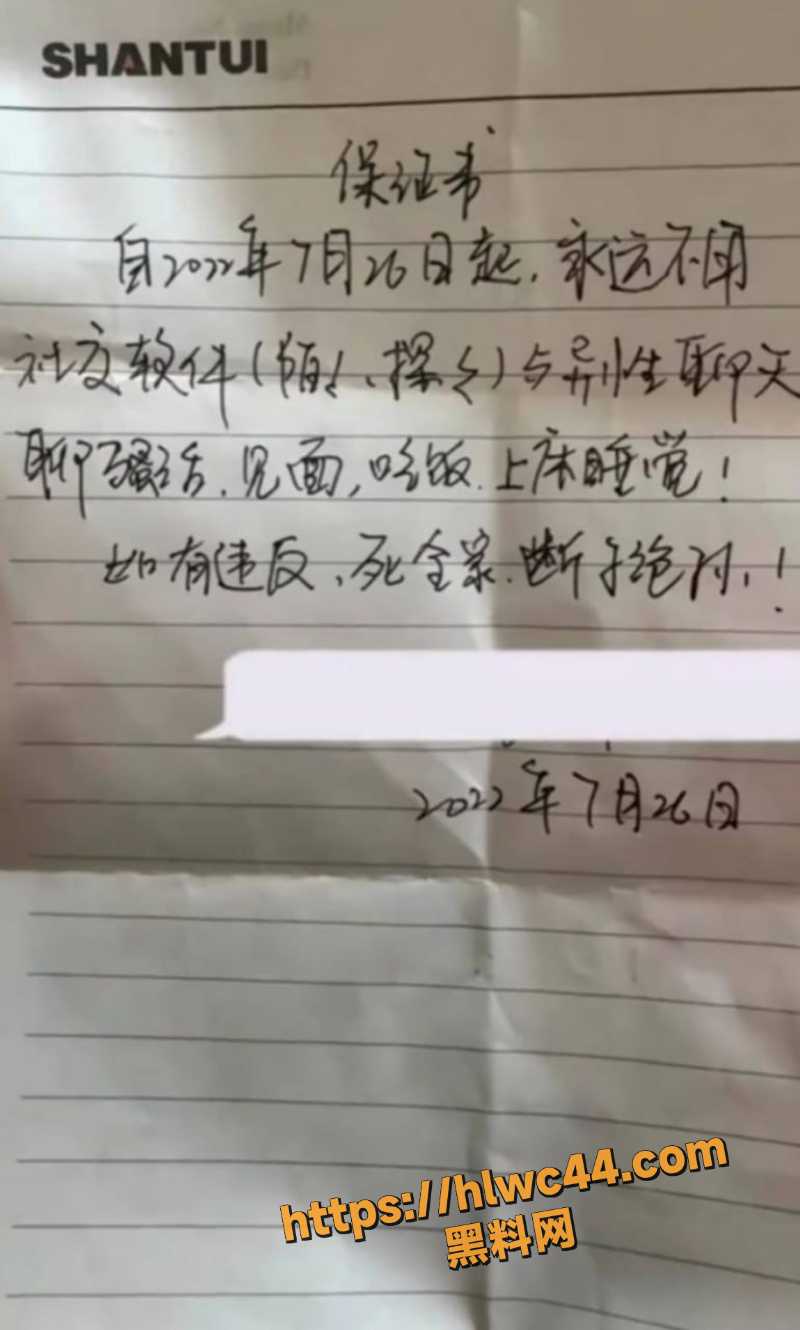 SHANTUI
保证书
自2022年7月26日起，永远不用
社交软件(陌く、探く)与异性聊天
聊骚话，见面，吃饭，上床睡觉！
如有违反、死全家、断子绝孙，！
2022年7月26日
https://hlwc44.com
黑料网